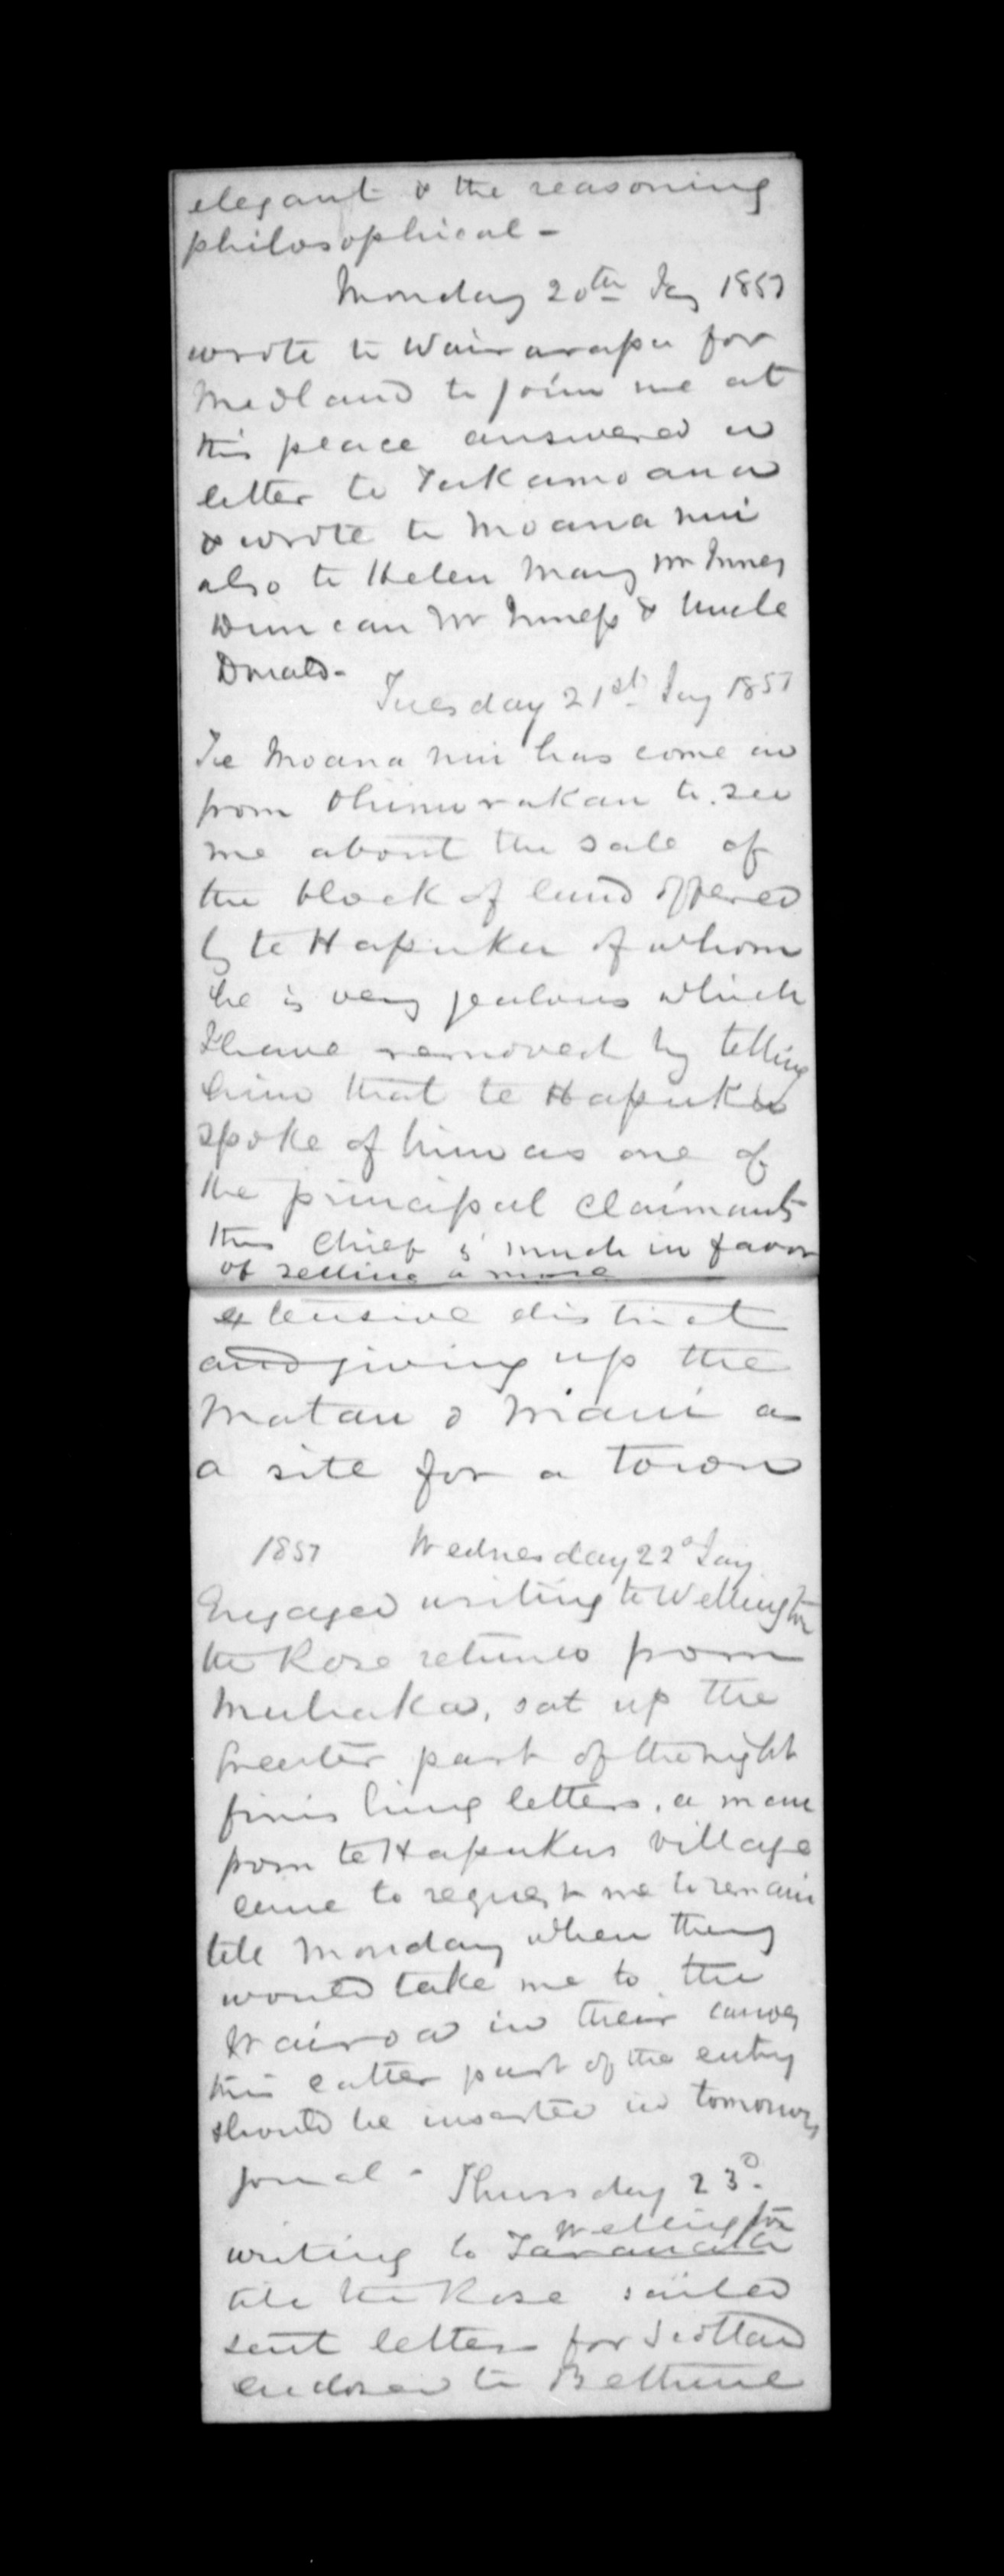 elegant & the reasoning
philosophical -
Monday 20th Jany 1851
wrote to Wairarapa for
Medland to join me at
this place answered a
letter to Tukamoana
& wrote to Moana nui
also to Helen Mary Mr Innes
Duncan Mr Inness & Uncle
Donald -
Tuesday 21st Jany 1851
Te Moana nui has come in
from to see
me about the sale of
the block of land offered
by te Hapuku of whom
he is very jealous which
I have removed by telling
him that te Hapuku
spoke of him as one of
the principal claimants
this chief is much in favor
of selling a more
extensive district
and giving up the
Matau o Maui as
a site for a town
1851 Wednesday 22d Jany
Engaged writing to Wellington
the Rose returned from
Mohaka, sat up the
greater part of the night
finishing letters, a man
from te Hapukus village
came to request me to remain
till Monday when they
would take me to the
Wairoa in their canoes
this latter part of the entry
should be inserted in tomorrows
jornal - Thursday 23d.
Wellington
writing to Taranaki
till the Rose sailed
sent letters for Scotland
enclosed to Bethune